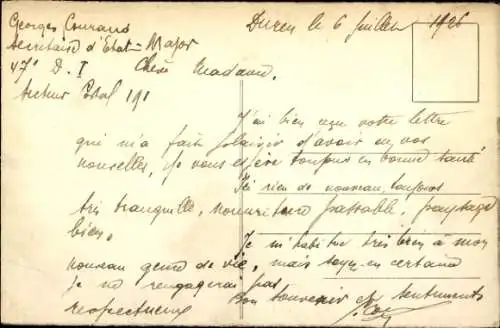 Georges Couraud
Secrétaire d'Etat-Major
47e D.I
Secteur Postal 191
Duren le 6 Juillet 1926
Chère Madame.
J'ai bien reçu votre lettre
qui m'a fait plaisir d'avoir eu vos
nouvelles, je vous espère toujours en bonne santé
Ici rien de nouveau, toujours
très tranquille, nourriture passable, paysage
bien.
Je m'habitue très bien à mon
nouveau genre de vie, mais soyez en certaine
je ne rengagerai pas.
Bon souvenir et sentiments
respectueux